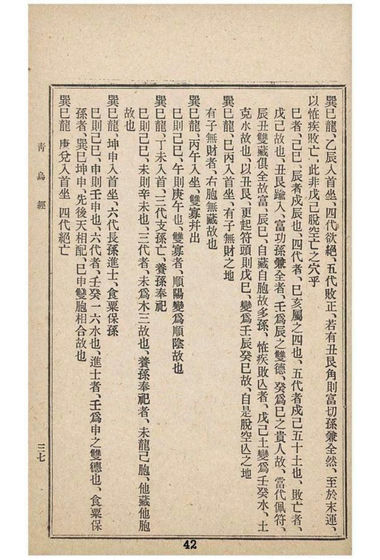 巽巳龍、乙辰入首坐、四代欲絕、五代敗正、若有丑艮角則富切孫兼全然、至於末運、
以惟疾敗亡、此非戊己脫空亡之穴乎
巳者、己巳、辰者戊辰也、四代者、巳亥屬之四也、五代者戊己五十土也、敗亡者、
戊己故也、丑艮繪入、富功孫兼全者、壬爲辰之雙德、癸爲巳之貴人故、當代佩符、
辰丑雙藏俱全故富、辰巳、自藏自胞故多孫、惟疾敗亾者、戊己土變爲壬癸水、土
克水故也、以丑艮、更起符頭則戊巳、變爲壬辰癸巳故、自是脫空亾之地
巽巳龍、巳丙入首坐、有子無財之地
有子無財者、右胞無藏故也
巽巳龍、丙午入坐、雙寡并出
巳則己巳、午則庚午也、雙寡者、順陽變爲順陰故也
巽巳龍、丁未入首、三代支孫亡、養孫奉祀
巳則己巳、未則辛未也、三代者、未爲木三故也、養孫奉祀者、未龍己胞、他藏他胞
故也
巽巳龍、坤申入首坐、六代長孫進士、食粟保孫
巳則己巳、申則壬申也、六代者、壬癸一六水也、進士者、壬爲申之雙德也、食粟保
孫者、巽巳坤申、先後天相配、巳申雙胞相合故也
巽巳龍、庚兌入首坐、四代絕亡
靑烏經
三七
42